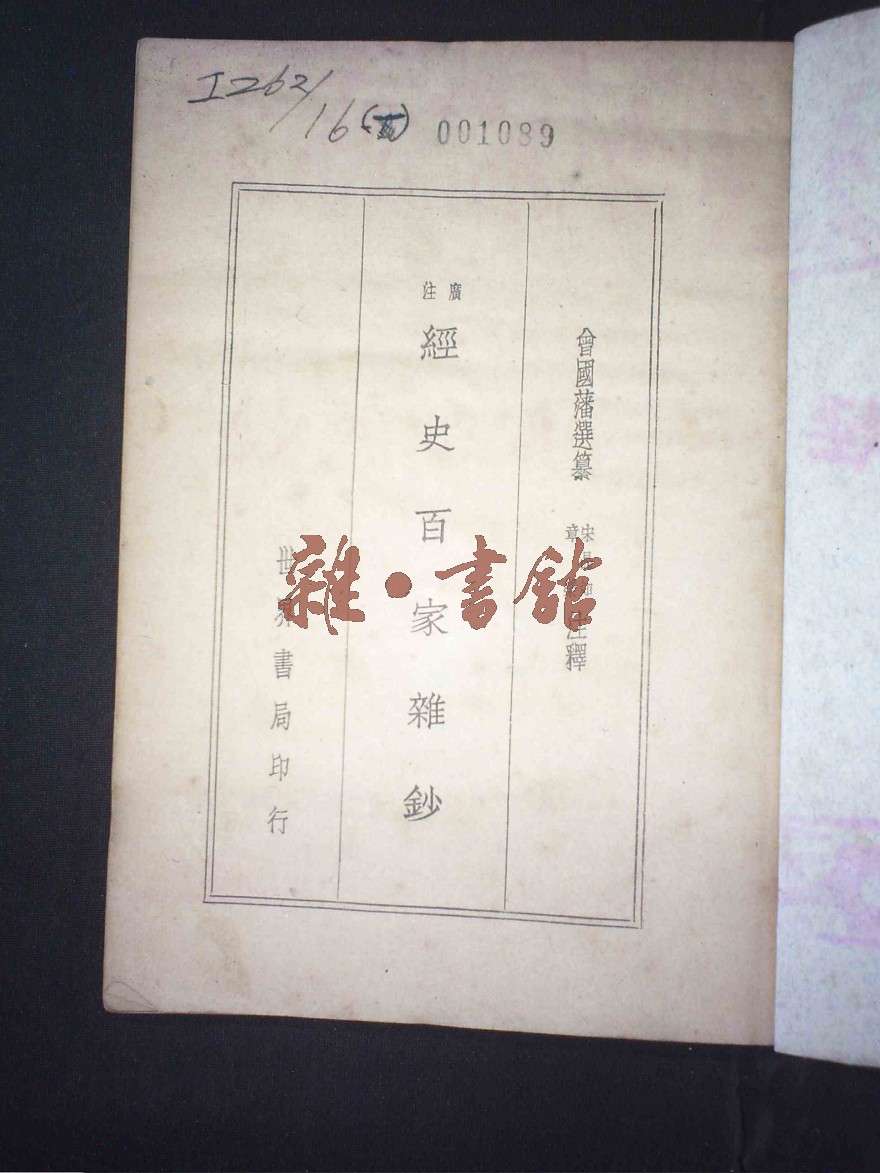 I262/16(五)
001089
曾國藩選纂
宋
章
注釋
廣注
經史百家雜鈔
世界書局印行
雜·書館